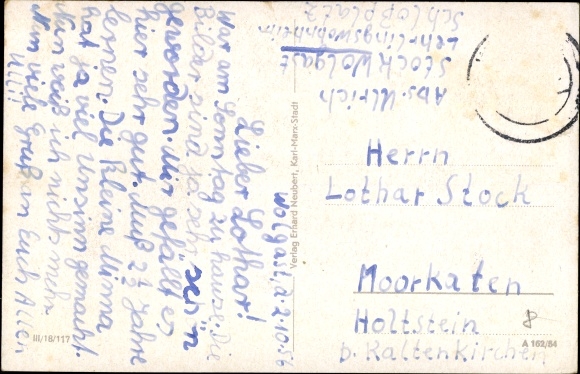 Wolgast, d. 2.10.56
Lieber Lothar!
War am Sonntag zu hause. Die
Bilder sind ja sehr schön
geworden. Mir gefällt es
hier sehr gut. Muß 2½ Jahre
lernen. Die kleine Minna
hat ja viel Unsinn gemacht.
Nun weiß ich nichts mehr
Nun viele Grüße an Euch Allen
Ulli!
Abs. Ulrich
Stock Wolgast
Lehrlingswohnheim
Schloßplatz
Herrn
Lothar Stock
Moorkaten
Holtstein
b. Kaltenkirchen
8
Verlag Erhard Neubert, Karl-Marx-Stadt
III/18/117
A 162/54